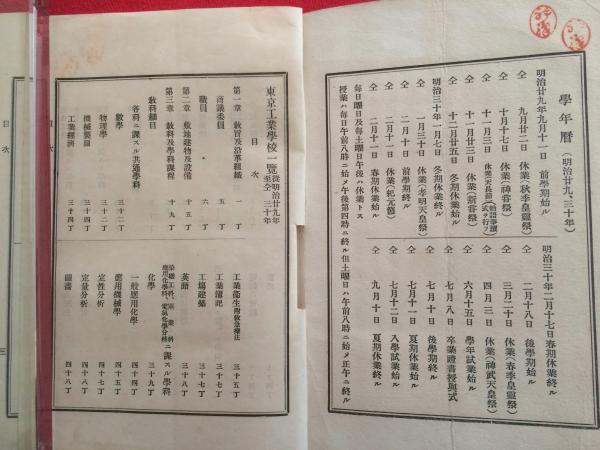 學年曆(明治廿九、三十年)
明治廿九年九月十一日 前學期始ル
仝 九月廿二日 休業(秋季皇靈祭)
仝 十月十七日 休業(神嘗祭)
仝 十一月三日 休業(天長節)
仝 十一月廿三日 休業(新嘗祭)
仝 十二月廿五日 冬期休業始ル
明治三十年一月七日 冬期休業終ル
仝 一月三十日 休業(孝明天皇祭)
仝 二月十日 前學期終ル
仝 二月十一日 休業(紀元節)
仝 二月十一日 春期休業始ル
明治三十年二月十七日 春期休業終ル
仝 二月十八日 後學期始ル
仝 三月二十日 休業(春季皇靈祭)
仝 四月三日 休業(神武天皇祭)
仝 六月十五日 學年試業始ル
仝 七月八日 卒業證書授與式
仝 七月十日 後學期終ル
仝 七月十一日 夏期休業始ル
仝 七月十二日 入學試業始ル
仝 九月十日 夏期休業終ル
每日曜日及每土曜日午後ハ休業トス
授業ハ每日午前八時ニ始メ午後第四時ニ終ル但土曜日ハ午前八時ニ始メ正午ニ終ル
東京工業學校一覽 從明治廿九年至仝三十年
目次
第一章 教旨及沿革組織 一丁
商議委員 五丁
職員 六丁
第二章 敷地建物及設備 十五丁
第三章 教科及學科課程 十九丁
教科細目
各科ニ課スル共通學科
數學 三十二丁
物理學 三十二丁
機械製圖 三十四丁
工業經濟 三十四丁
工業衛生附救急療法 三十五丁
工業簿記 三十七丁
工場建築 三十七丁
英語 三十八丁
染織工科、窯業科、應用化學科、電氣化學分科ニ課スル學科
化學 三十九丁
一般應用化學 四十丁
應用機械學 四十四丁
定性分析 四十五丁
定量分析 四十八丁
圖畫 四十八丁
目次
目次
三